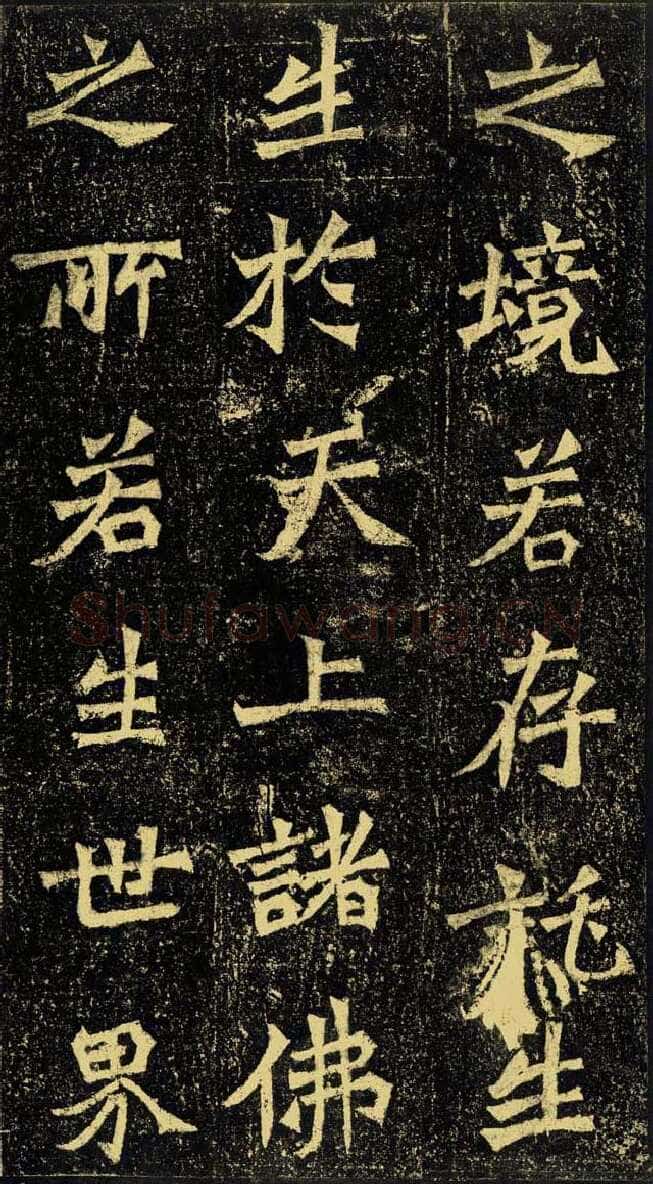 之境若存托生
生於天上諸佛
之所若生世界
Shufawang.CN